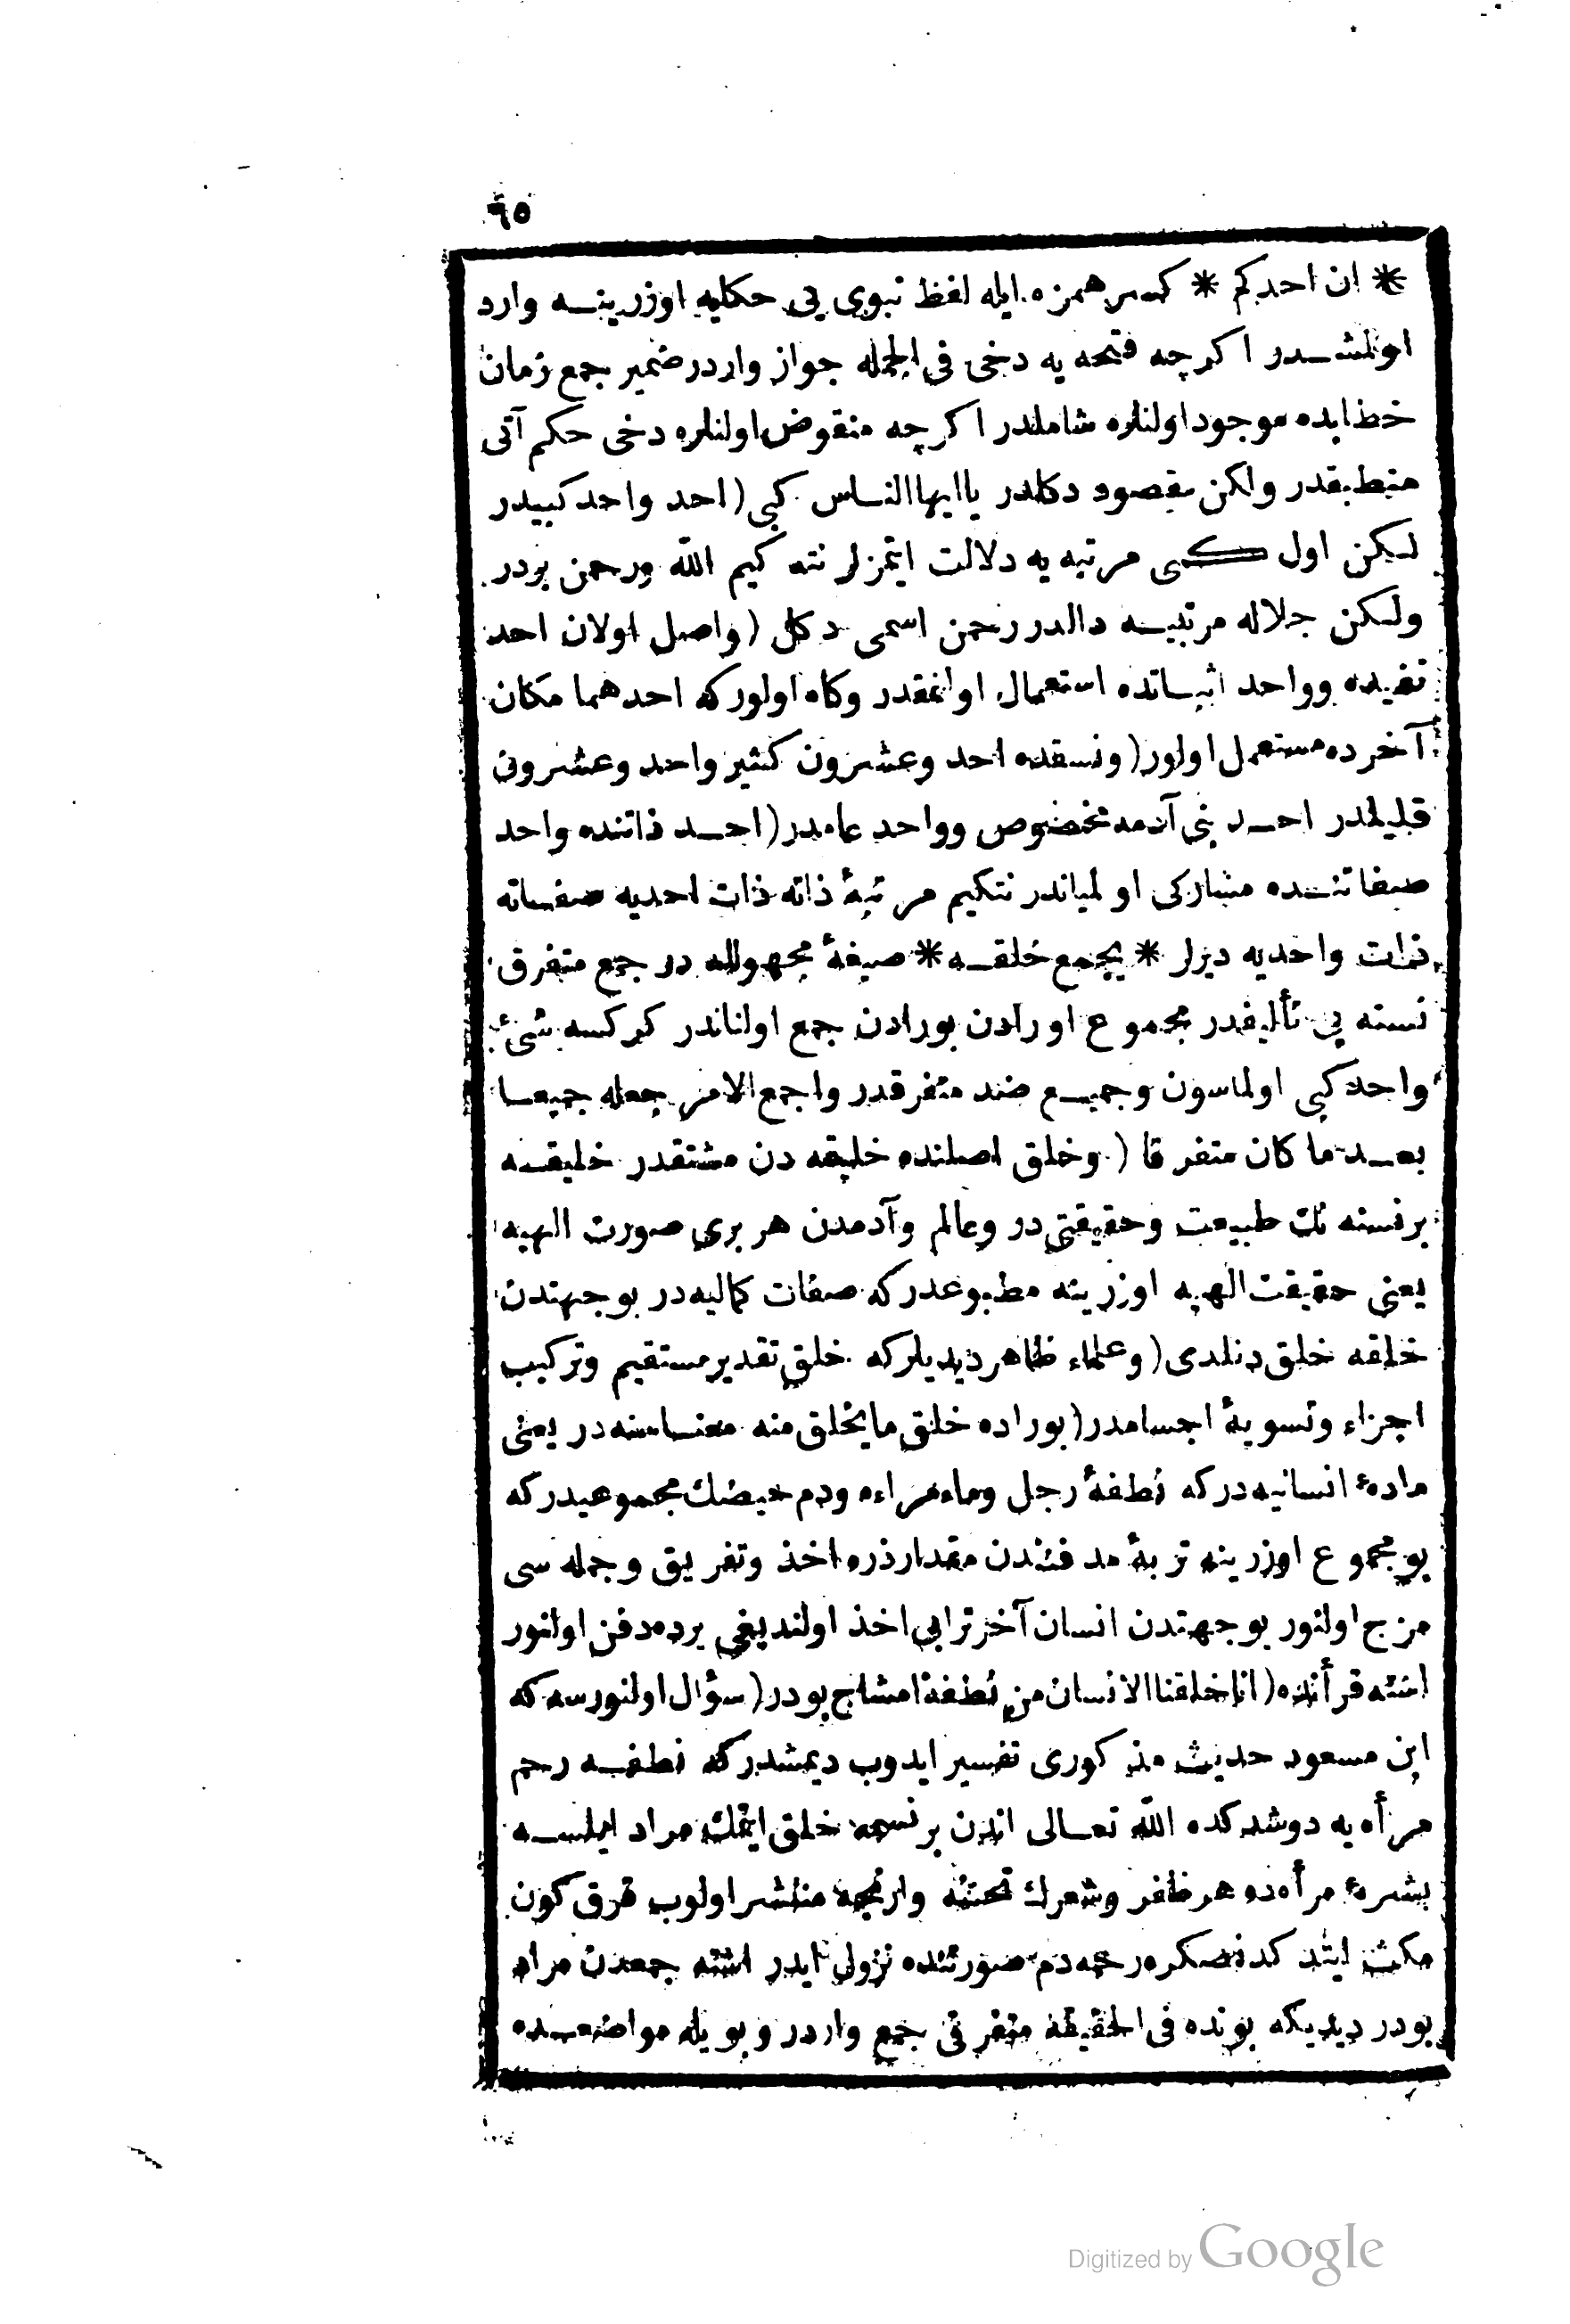 ٦٥
* ان احدکم * کسر همزه ایله لفظ نبوی یی حکایه اوزرینه وارد
اولمشدر اکرچه فتحه یه دخی فی الجمله جواز واردر ضمیر جمع زمان
خطابده موجود اولنلره شاملدر اکرچه منقوض اولنلره دخی حکم آتی
منطبقدر ولکن مقصود دکلدر یاایها الناس کبی (احد واحد کبیدر
لیکن اول کی مرتبه یه دلالت ایتمزلر نته کیم الله ورحمن بردر
ولیکن جلاله مرتبیه دالدر رحمن اسمی دکل (واصل اولان احد
نفیده وواحد اثباتده استعمال اولنمقدر وکاه اولورکه احدهما مکان
آخرده مستعمل اولور (ونسقده احد وعشرون کثیر واحد وعشرون
قلیلدر احد بنی آدمه مخصوص وواحد عامدر (احد ذاتنده واحد
صفاتنده مشارکی اولمیاندر نتکیم مرتبهٔ ذاته ذات احدیه صفاته
ذات واحدیه دیرلر * یجمع خلقه * صیغهٔ مجهولله در جمع متفرق
نسنه یی تألیفدر مجموع اورادن بورادن جمع اولناندر کرکسه شیء
واحد کبی اولماسون وجمیع ضد متفرقدر واجمع الامر جعله جمیعا
بعد ما کان متفرقا (وخلق اصلنده خلیقه دن مشتقدر خلیقه
برنسنه نك طبیعت وحقیقتی در وعالم وآدمدن هر بری صورت الهیه
یعنی حقیقت الهیه اوزرینه مطبوعدرکه صفات کمالیه در بوجهتدن
خلقه خلق دنلدی (وعلماء ظاهر دیدیلرکه خلق تقدیر مستقیم وترکیب
اجزاء وتسویهٔ اجسامدر (بوراده خلق مایخلق منه معناسنه در یعنی
مادهٔ انسانیه درکه نطفهٔ رجل وماء مراءه ودم حیضك مجموعیدرکه
بو مجموع اوزرینه تربهٔ مدفندن مقدار ذره اخذ وتفریق وجمله سی
مزج اولنور بوجهتدن انسان آخر ترابی اخذ اولندیغی یرده دفن اولنور
اشته قرأنده (انا خلقنا الانسان من نطفة امشاج بودر (سؤال اولنورسه که
ابن مسعود حدیث مذکوری تفسیر ایدوب دیمشدرکه نطفه رحم
مرأه یه دوشدکده الله تعالی اندن برنسمه خلق ایتمك مراد ایلسه
بشرهٔ مرأه ده هر ظفر وشعرك تحتنه وارنجه منتشر اولوب قرق کون
مکث ایتدکدنصکره رحمه دم صورتنده نزول ایدر اشته جمعدن مراد
بودر دیدیکه بونده فی الحقیقه متفرقی جمع واردر وبویله مواضعده
Digitized by Google